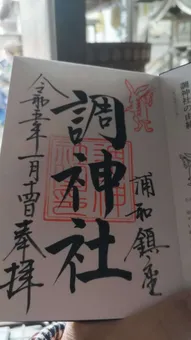 浦和鎮座
調神社
令和五年一月十四日
奉拝